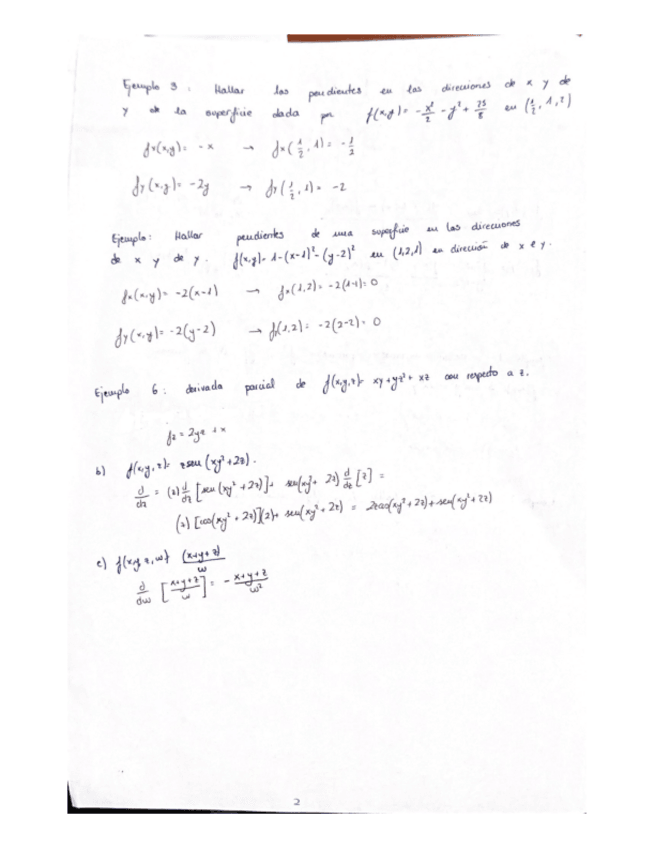 Ejemplo 3: Hallar las pendientes en las direcciones de x y de
y de la superficie dada por f(x,y)= -x²/2 - y² + 25/8 en (1/2, 1, 2)
fx(x,y)= -x → fx(1/2, 1)= -1/2
fy(x,y)= -2y → fy(1/2, 1)= -2
Ejemplo: Hallar pendientes de una superficie en las direcciones
de x y de y. f(x,y)= 1-(x-1)²-(y-2)² en (1,2,1) en dirección de x e y.
fx(x,y)= -2(x-1) → fx(1,2)= -2(1-1)=0
fy(x,y)= -2(y-2) → fy(1,2)= -2(2-2)=0
Ejemplo 6: derivada parcial de f(x,y,z)= xy+yz²+xz con respecto a z.
fz = 2yz + x
b) f(x,y,z)= zsen(xy²+2z).
d/dz = (z) d/dz [sen(xy²+2z)]+ sen(xy²+2z) d/dz [z] =
(z)[cos(xy²+2z)](2)+ sen(xy²+2z) = 2zcos(xy²+2z)+sen(xy²+2z)
c) f(x,y,z,w)= (x+y+z)/w
d/dw [x+y+z/w] = - x+y+z/w²
2